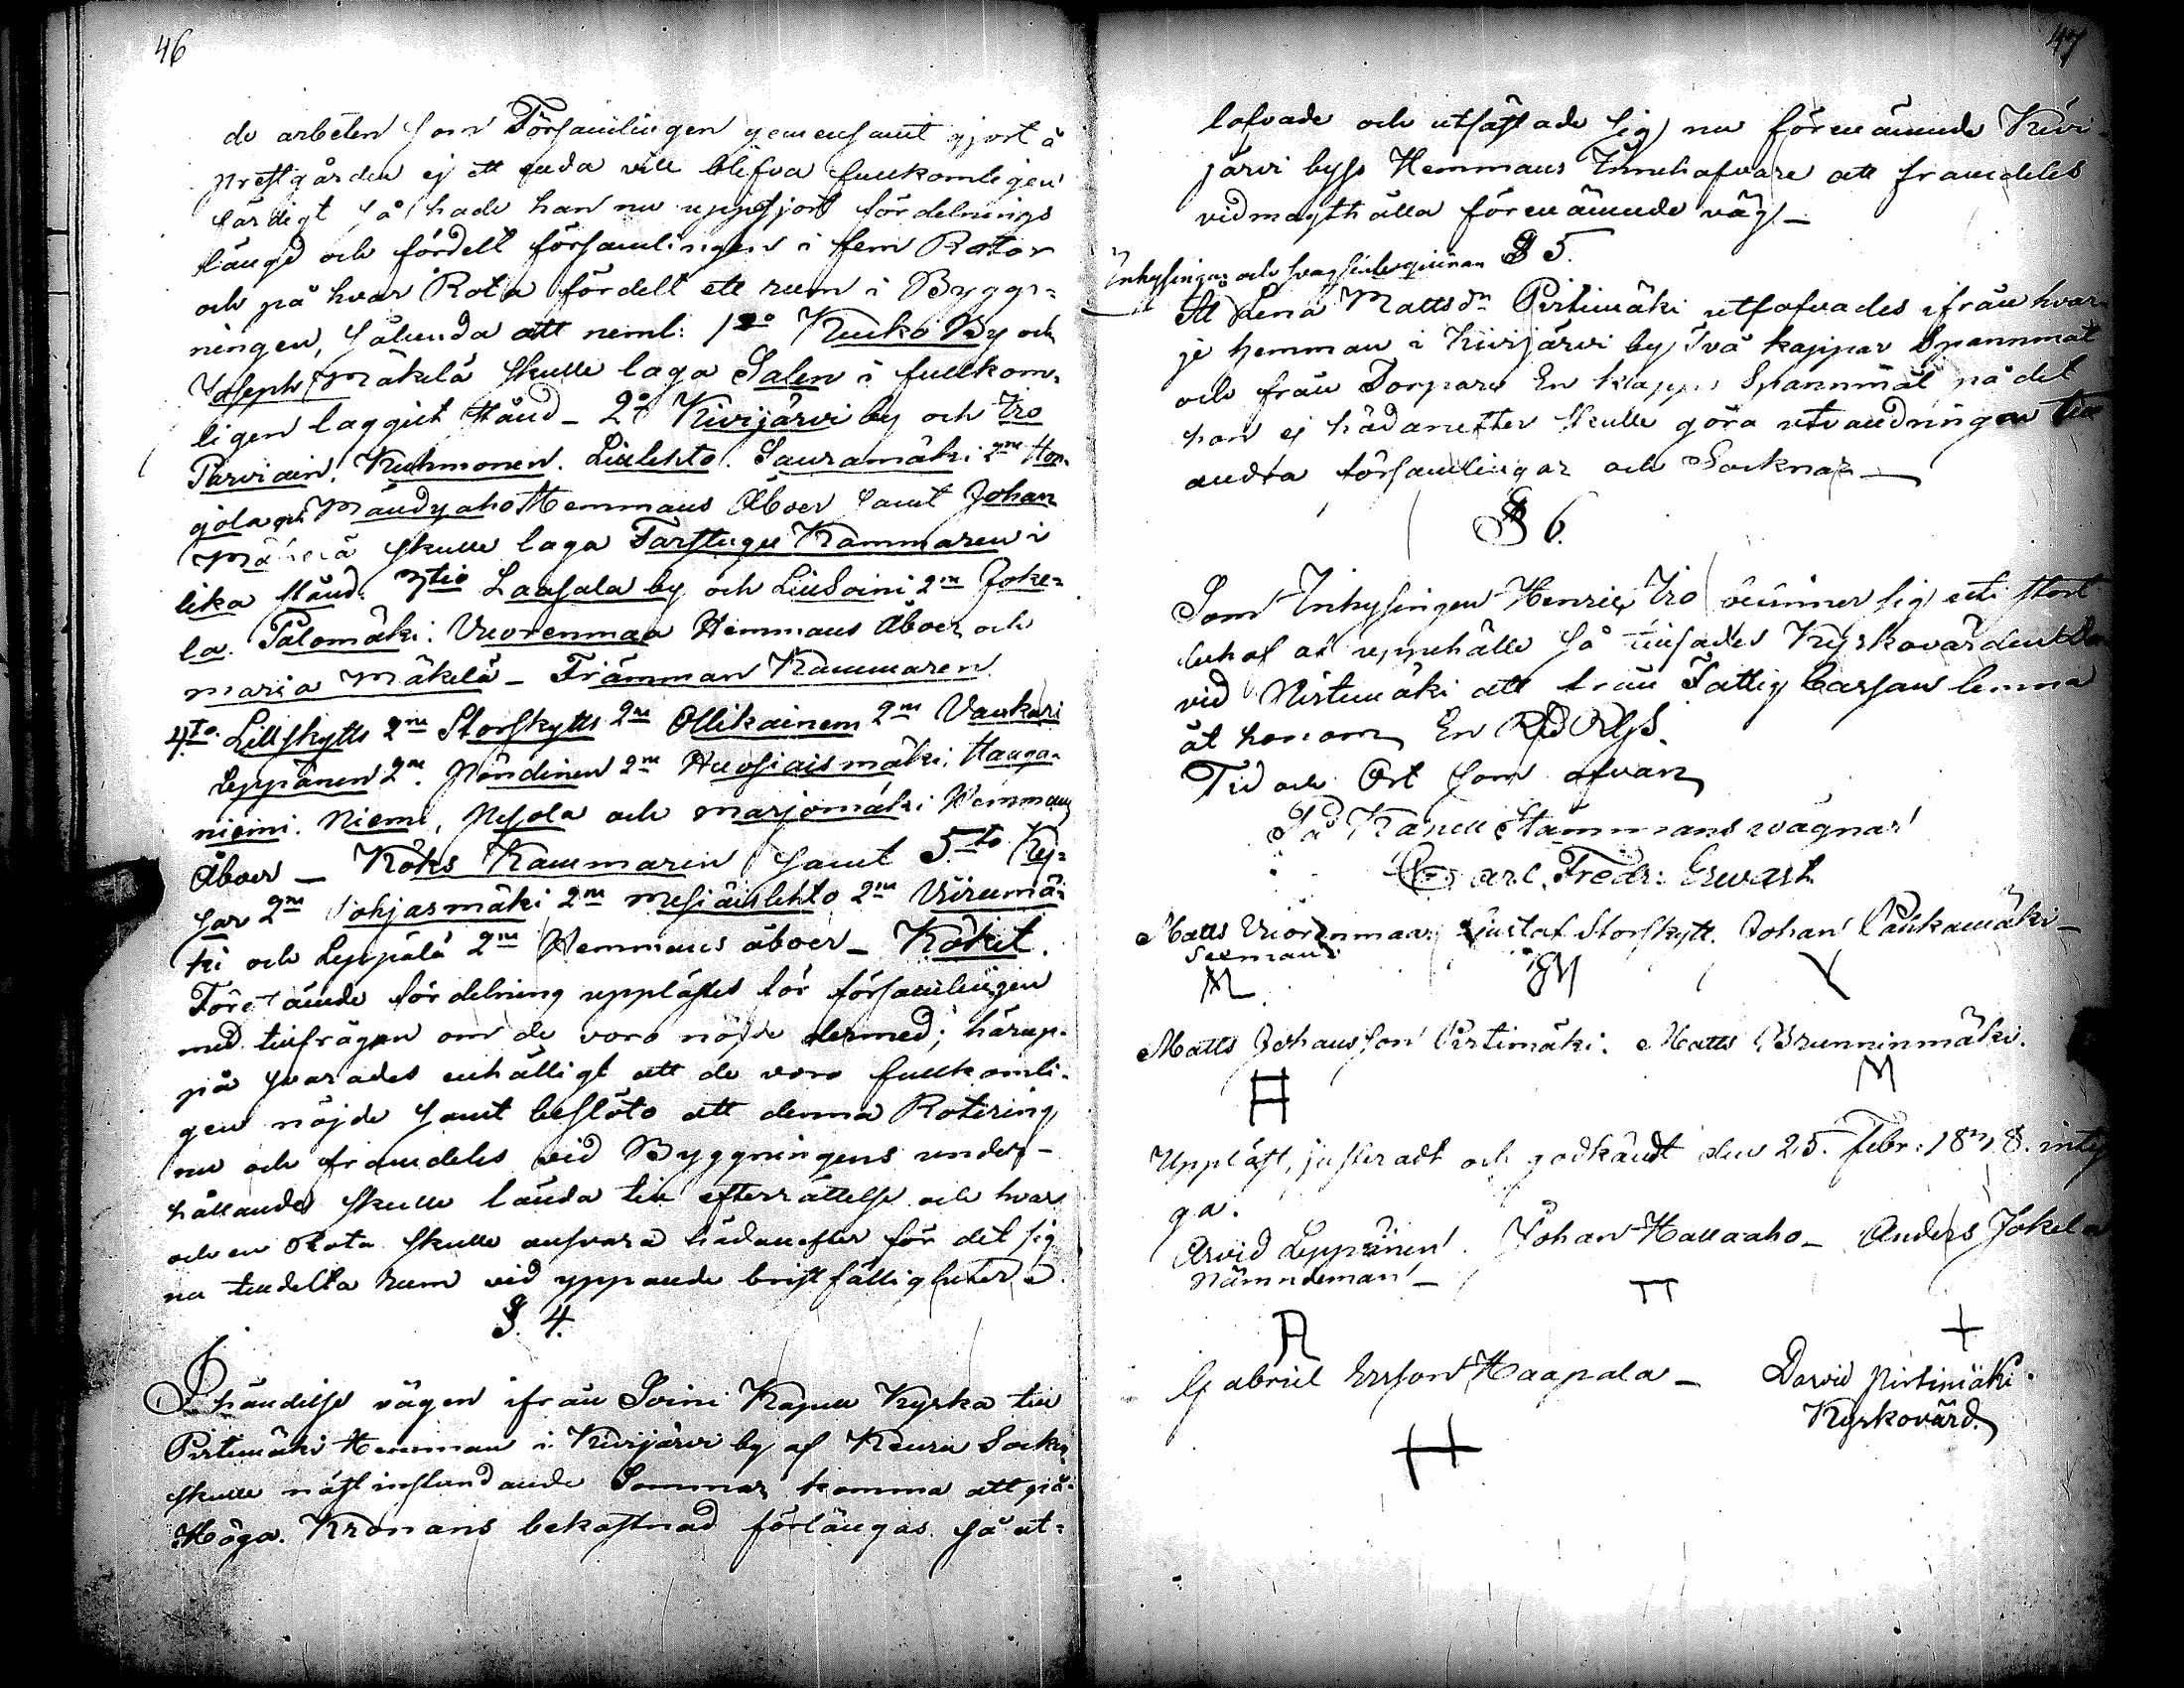 46
de arbeten som Församlingen gemensamt gjort å
prestgården ej ett enda vill blifva fullkomligen
färdigt så hade han nu uppgjort fördelnings
längd och fördelt församlingen i fem Rotor
och på hvar Rota fördelt ett rum i Bygg-
ningen, sålunda att neml: 1mo Kuuko By och
Joseph Mäkelä skulle laga Salen i fullkom-
ligen laggitt stånd - 2o Kivijärvi by och Iro
Parviain. Kuhmonen. Liulehto. Sauramäki 2ne Hon-
gola och Mändyaho Hemmans Åboer samt Johan
Mäkelä skulle laga Farstugu Kammaren i
lika stånd. 3tio Laasala by och LillSoini 2ne Joke-
la. Palomäki. Vuorenmaa Hemmans Åboer och
Maria Mäkelä - Främman Kammaren.
4to. Lillskytts 2ne Storskytts 2ne Ollikainen 2ne Vankari
Leppänen 2ne. Pöndinen 2ne Huosiaismäki, Hauga-
niemi. Niemi, Pesola och Marjomäki Hemmans
Åboer - Köks Kammaren samt 5to Key-
sar 2ne Pohjasmäki 2ne Mesiäislehto 2ne Viirumä-
ki och Leppälä 2ne Hemmans åboer - Köket.
Förestående fördelning upplästes för församlingen
med tillfrågan om de voro nöjde dermed; härup-
på svarades enhälligt att de voro fullkomli-
gen nöjde samt beslöto att denna Rotering
nu och framdeles vid Byggningens under-
hållandes skulle lända till efterrättelse och hvar
och en Rota skulle ansvara hädanefter för det sig
nu tilldelta rum vid yppande bristfälligheter.
§. 4.
I händelse vägen ifrån Soini Kapell Kyrka till
Pirtimäki Hemman i Kivijärvi by af Keuru Sockn
skulle nästinstundande Sommar komma att på
Höga Kronans bekostnad förlängas så ut-
47
lofvade och utfästade sig nu förenämnde Kivi-
järvi byss Hemmans Innehafvare att framdeles
vidmagthålla förenämnde väg -
Inhysingar och svagsinta qvinnan § 5.
At Lena Mattsdr Pirtimäki utlofvades ifrån hvar-
je hemman i Kivijärvi by två kappar Spannmål
och från Torpare En kappe Spannmål på det
hon ej hädanefter skulle göra utvandringar till
andra församlingar och Socknar -
§ 6.
Som Inhysingen Henric Iro befinner sig uti stort
behof af uppehälle så tillsades Kyrkovärden
vid Pirtimäki att från Fattig Cassan lemna
åt honom En Rub Rgs.
Tid och Ort som ofvan
På Kapell Stämmans vägnar
Carl. Fredr: Erwast
Matts Vuorenmaa Gustaf Storskytt. Johan Pahkamäki -
Sexman
M GM
Matts Johansson Pirtimäki. Matts Brunninmäki.
M
Uppläst, justeradt och godkändt den 25. Febr: 1838. inty
ga.
Arvid Leppänen. Johan Hallaaho - Anders Jokela
Nämndeman -
Gabriel Ersson Haapala - David Pirtimäki.
Kyrkovärd.